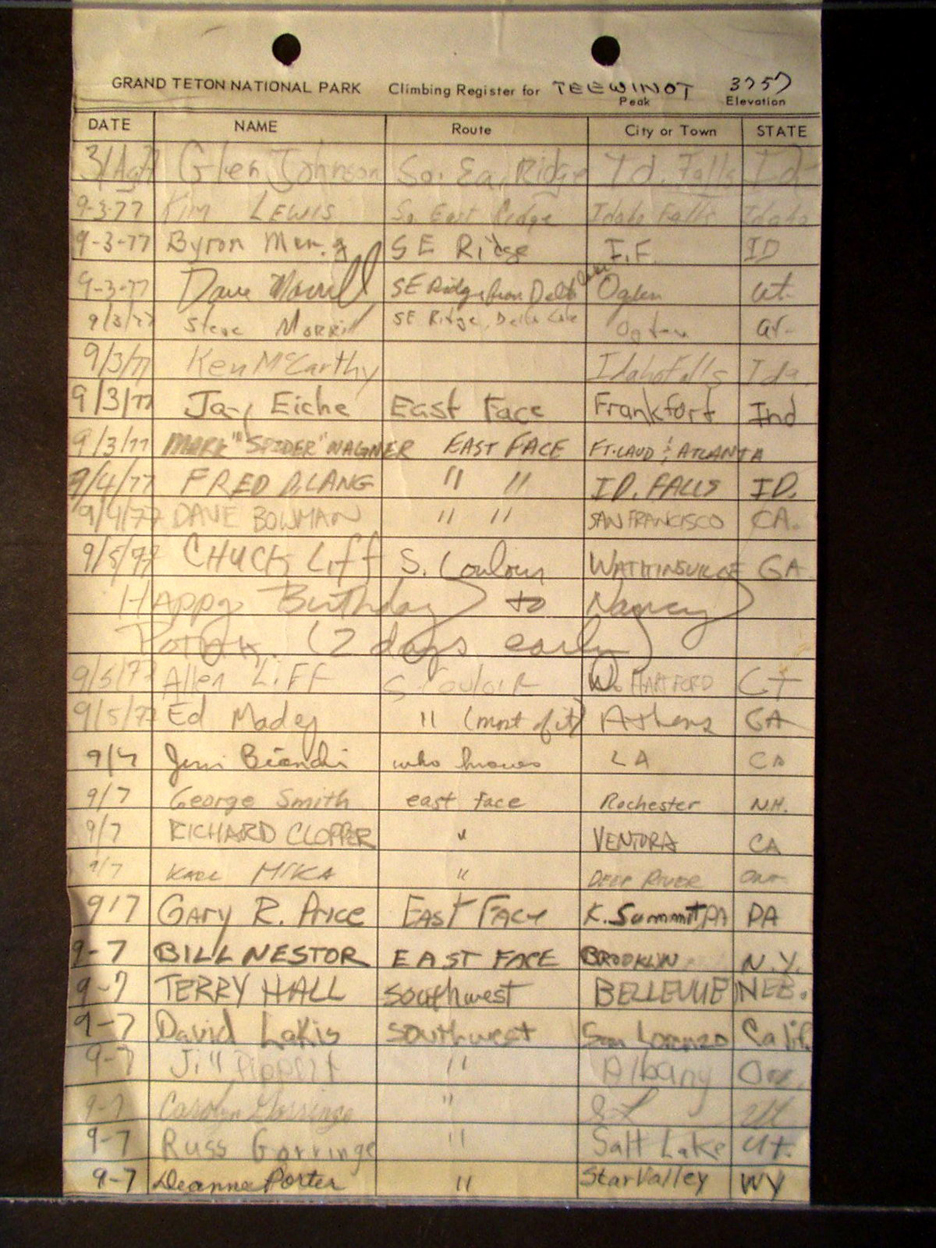 GRAND TETON NATIONAL PARK Climbing Register for TEEWINOT 3757
Peak Elevation
DATE NAME Route City or Town STATE
31 Glen Johnson So. Ea. Ridge Id. Falls Id
9-3-77 Kim LEWIS So East Ridge Idaho Falls Idaho
9-3-77 Byron SE Ridge I.F. ID
9-3-77 Dave SE Ridge from Delta Lake Ogden Ut.
9/3/77 Steve Morrill SE Ridge, Delta Lake Ogden
9/3/77 Ken McCarthy Idaho Falls Ida.
9/3/77 Jay Eiche East Face Frankfort Ind
9/3/77 MARK "SPIDER" WAGNER EAST FACE FT. LAUD & ATLANTA
9/4/77 FRED D. LANG " " ID. FALLS ID.
9/4/77 DAVE BOWMAN " " SAN FRANCISCO CA.
9/5/77 CHUCK LIFF S. Couloir GA
Happy Birthday to Nancy
(2 days early)
9/5/77 Allen LIFF S. Couloir W. HARTFORD CT
9/5/77 Ed Madej " (most of it) Athens GA
9/7 Bianchi who knows LA CA
9/7 George Smith east face Rochester NH.
9/7 RICHARD CLOPPER " VENTURA CA
9/7 KARL MIKA " DEEP RIVER Ont
9/7 GARY R. Price EAST FACE K. Summit, PA PA
9-7 BILL NESTOR EAST FACE BROOKLYN N.Y.
9-7 TERRY HALL Southwest BELLEVUE NEB.
9-7 David Lakis Southwest San Lorenzo Calif.
9-7 Jill Pippert " Albany Ore.
9-7 Carolyn Gorringe " SL Ut
9-7 Russ Gorringe " Salt Lake Ut.
9-7 Deanne Porter " Star Valley WY